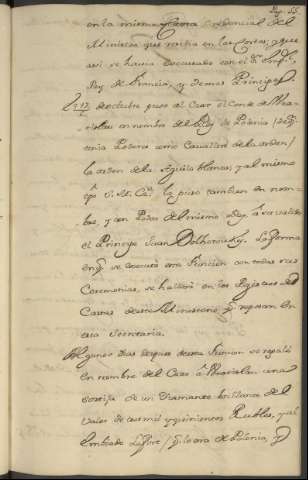 en la misma Carta credencial del
Ministro que residia en las Cortes, y que
asi se havia executado con el
Rey de Francia, y demas Principes
17 de octubre puso al Czar el Conde de
en nombre del Rey de Polonia
tenia Poderes como Cavallero de la orden
la orden del Aguila blanca, y al mismo
tpo S. M. Cz.ª la puso tambien en nom-
bre, y con Poder del mismo Rey à su valido
el Principe Juan Dolhorouky. La forma
en q.e se executò esta funcion con todas sus
Ceremonias, se hallarà en los Registros de
Cartas deste Ministerio q.e reposan en
esta Secretaria.
Algunos dias despues desta funcion se regalò
en nombre del Czar à una
sortija de un Diamante brillante del
valor de tres mil y quinientos Rublos, y al
Polonia, q.e